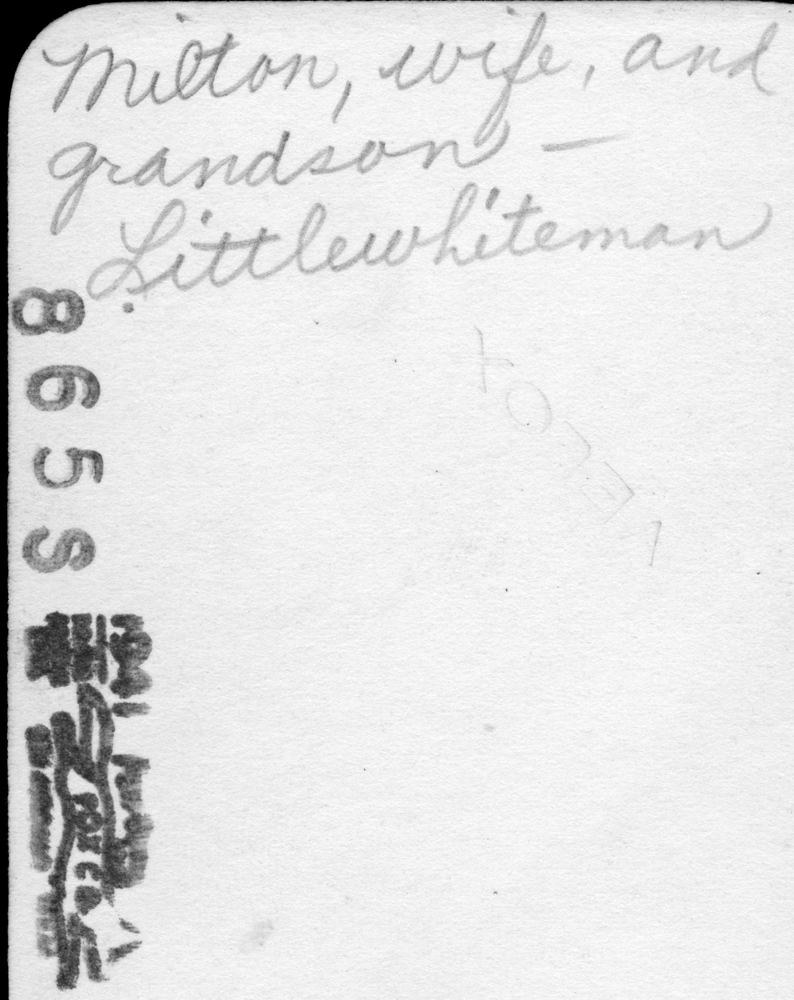 Milton, wife, and
grandson —
Littlewhiteman
865S